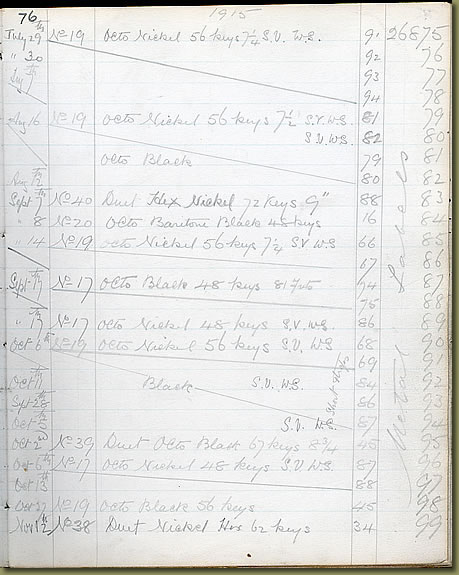 76 1915
July 29th No 19 Octo Nickel 56 keys 7¼ S.V. W.S. 91 26875
" 30 92 76
93 77
94 78
Aug 16 No 19 Octo Nickel 56 keys 7½ S.V. W.S. 81 79
S.V. W.S. 82 80
Octo Black 79 81
80 82
Sept 7th No 40 Duet Hex Nickel 72 keys 9" 88 83
" 8 No 20 Octo Baritone Black 48 keys 16 84
" 14 No 19 Octo Nickel 56 keys 7¼ S.V. W.S. 66 85
67 86
Sept No 17 Octo Black 48 keys 74 87
75 88
" 17 No 17 Octo Nickel 48 keys S.V. W.S. 86 89
Oct 6th No 19 Octo Nickel 56 keys S.V. W.S. 68 90
69 91
Oct 11 Black S.V. W.S. 84 92
Sept 28 86 93
Oct 5 S.V. W.S. 87 94
Oct 2nd No 39 Duet Octo Black 67 keys 8¾ 45 95
Oct 6th No 17 Octo Nickel 48 keys S.V. W.S. 87 96
Oct 13th 88 97
Oct 27 No 19 Octo Black 56 keys 45 98
Nov 12 No 38 Duet Nickel Hex 62 keys 34 99
Metal Labels